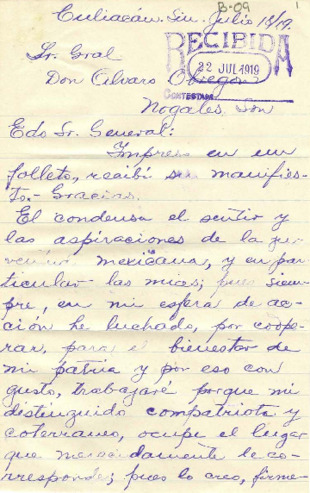 B-09
1
Culiacán. Sin. Julio 18/19.
Sr. Gral
RECIBIDA
22 JUL 1919
CONTESTADA
Don Alvaro Obregon
Nogales. Son
Edo Sr. General:
Impreso en un
folleto, recibí su manifies-
to.- Gracias.
El condensa el sentir y
las aspiraciones de la ju-
ventud mexicana, y en par-
ticular las mias; pues siem-
pre, en mi esfera de ac-
ción he luchado, por coope-
rar, para el bienestar de
mi patria y por eso con
gusto, trabajaré porque mi
distinguido compatriota y
coterraneo, ocupe el lugar
que merecidamente le co-
rresponde; pues lo creo, firme-